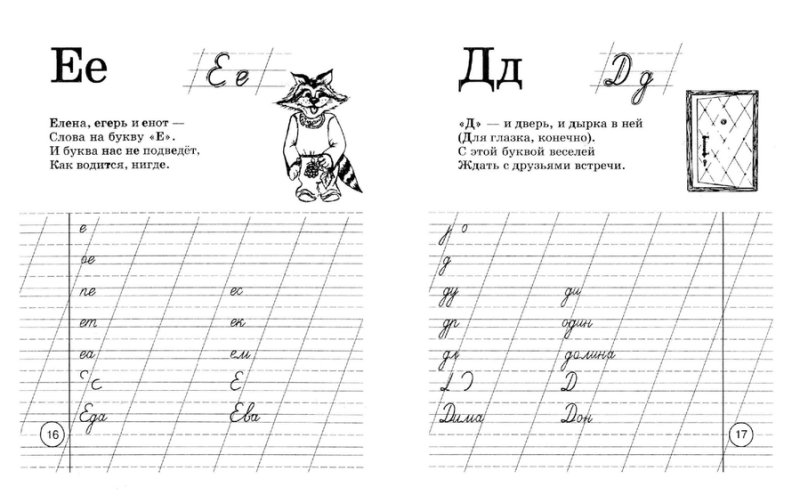 Ее
Ее
Елена, егерь и енот —
Слова на букву «Е».
И буква нас не подведёт,
Как водится, нигде.
е
ое
пе ес
ет ек
еа ем
Е
Еда Ева
16
Дд
Дд
«Д» — и дверь, и дырка в ней
(Для глазка, конечно).
С этой буквой веселей
Ждать с друзьями встречи.
д
ду ди
др один
дл долина
Д
Дима Дон
17